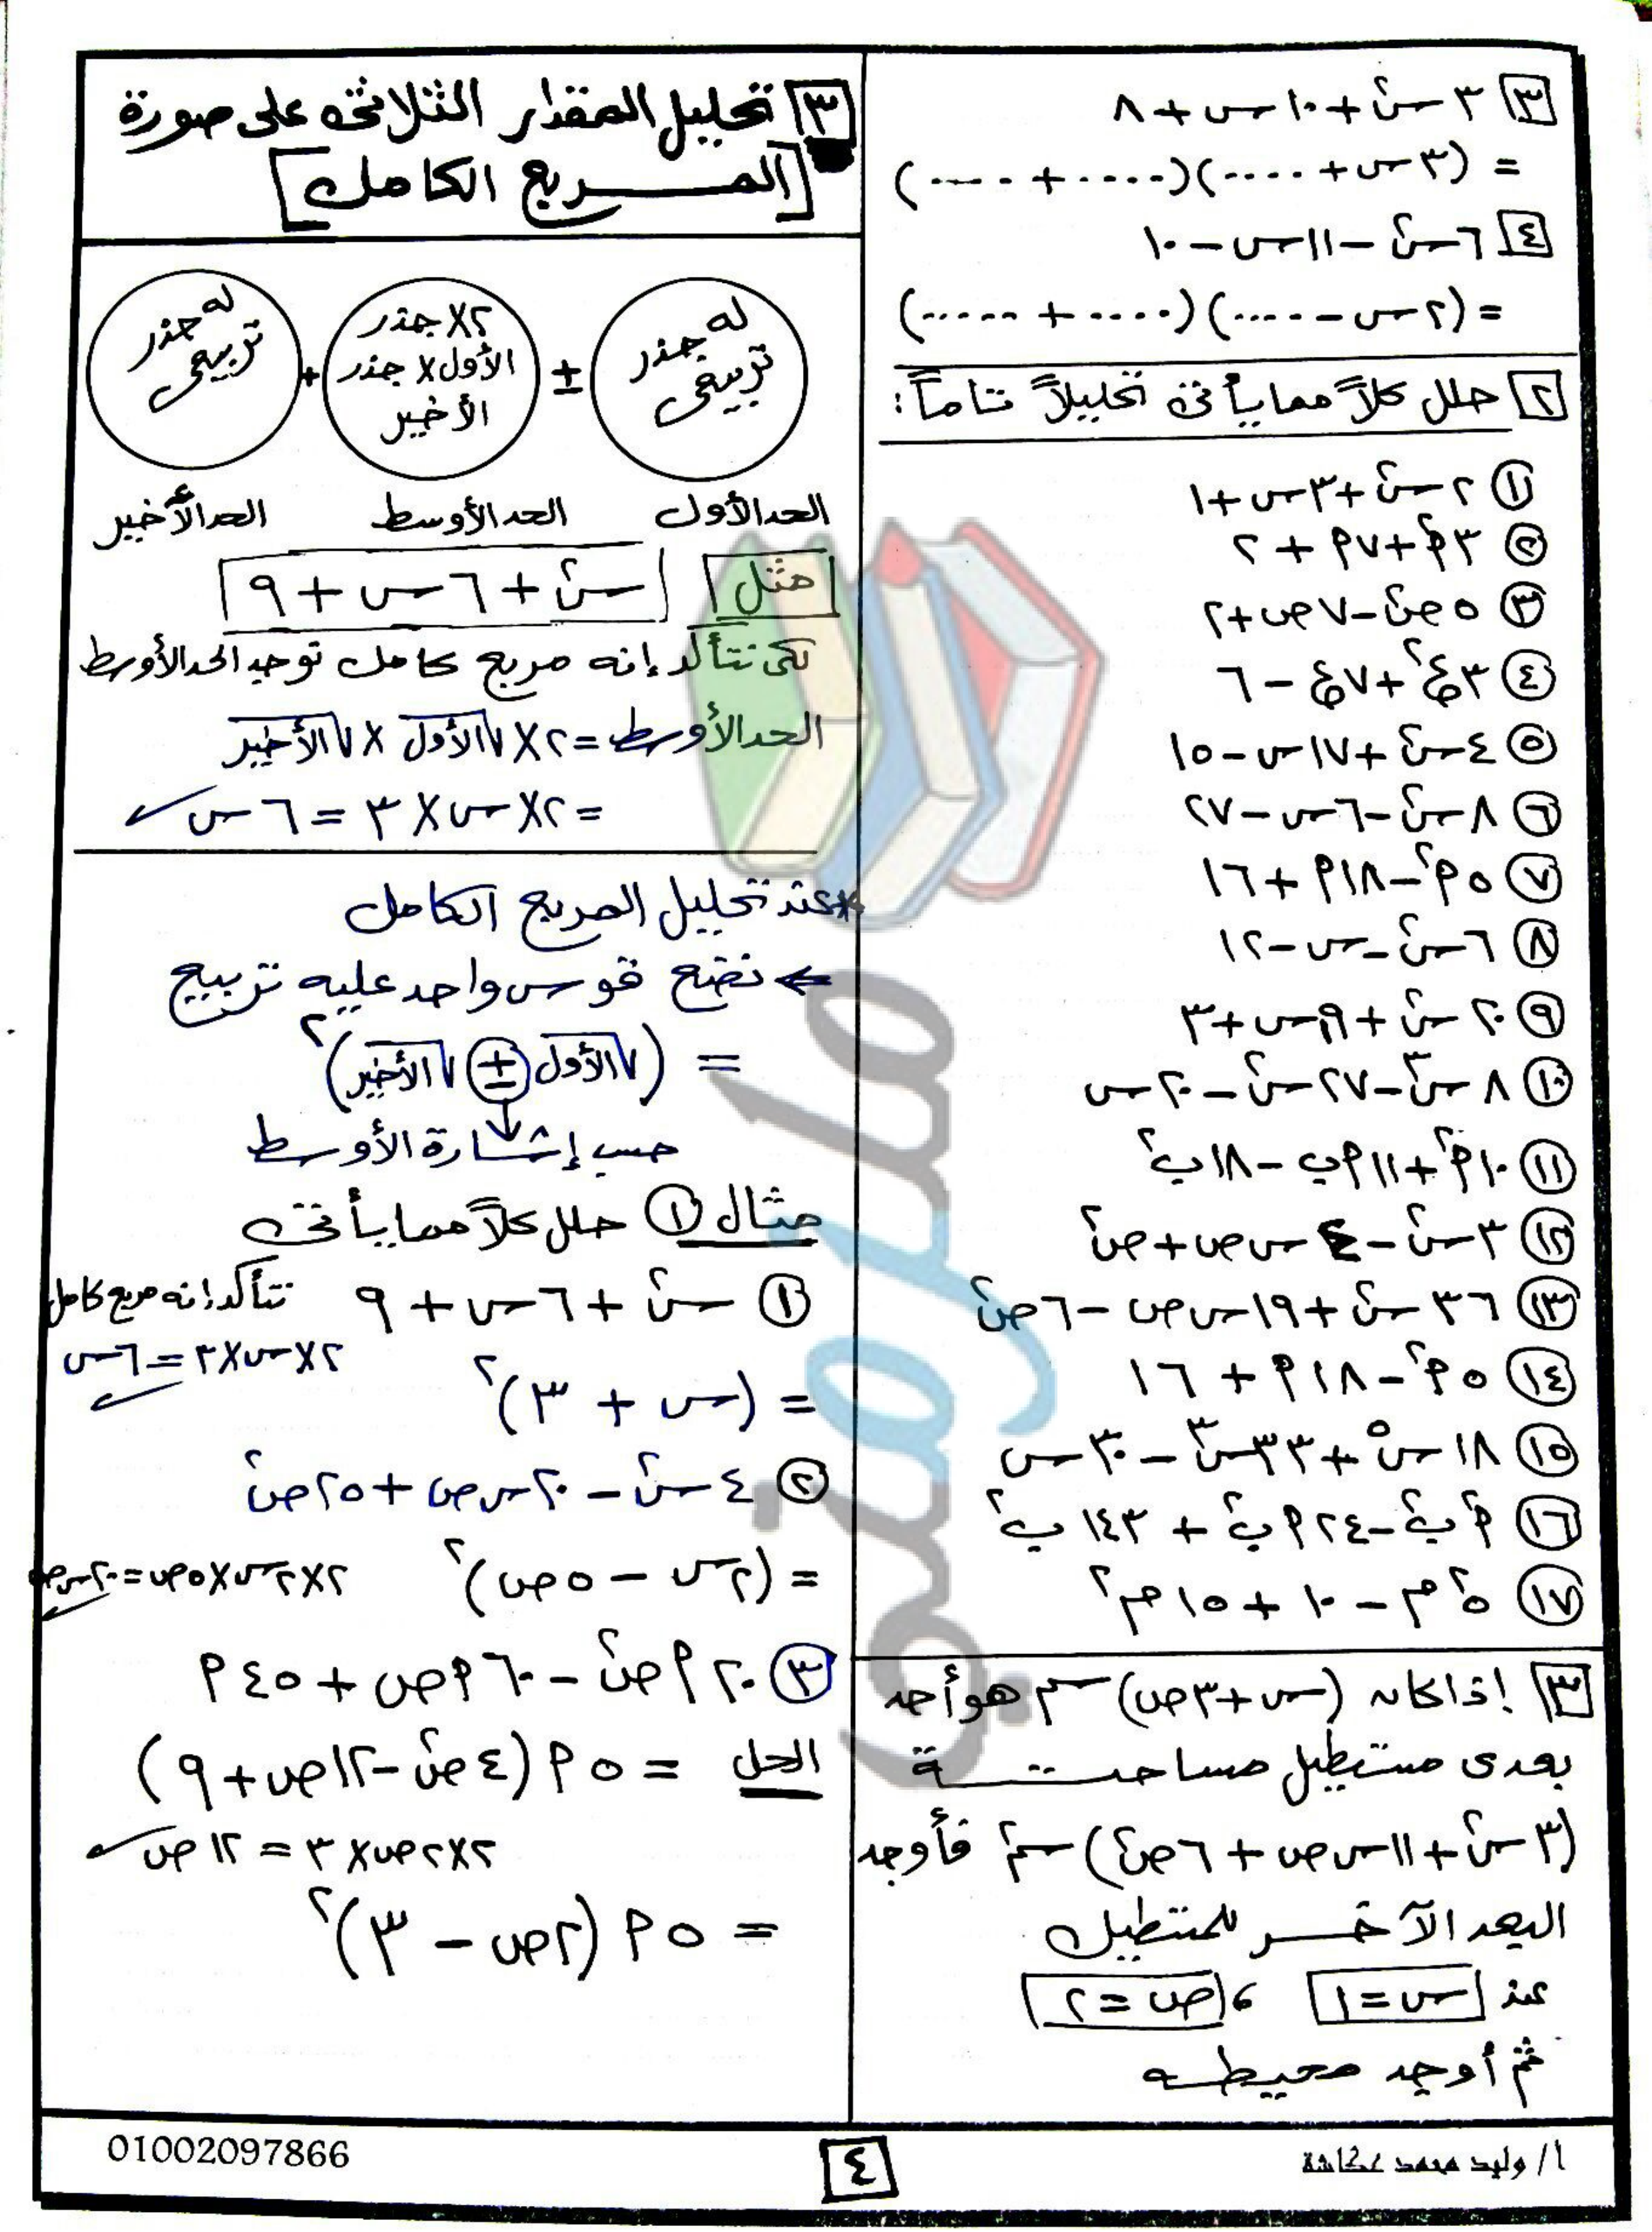 [٣] ٣س٢ + ١٠س + ٨
= (٣س + ....)(.... + ....)
[٤] ٦س٢ - ١١س - ١٠
= (٢س - ....)(.... + ....)
[٢] حلل كلاً مما يأتى تحليلاً تاماً:
① ٢س٢ + ٣س + ١
② ٣م٢ + ٧م + ٢
③ ٥ص٢ - ٧ص + ٢
④ ٣ع٢ + ٧ع - ٦
⑤ ٤س٢ + ١٧س - ١٥
⑥ ٨س٢ - ٦س - ٢٧
⑦ ٥م٢ - ١٨م + ١٦
⑧ ٦س٢ - س - ١٢
⑨ ٢٠س٢ + ١٩س + ٣
⑩ ٨س٣ - ٢٧س٢ - ٢٠س
⑪ ١٠م٢ + ١١م ب - ١٨ب٢
⑫ ٣س٢ - ٤س ص + ص٢
⑬ ٣٦س٢ + ١٩س ص - ٦ص٢
⑭ ٥م٢ - ١٨م + ١٦
⑮ ١٨س٥ + ٣٣س٣ - ٣٠س
⑯ م٢ب٢ - ٢٤م ب٢ + ١٤٣ب٢
[٣] إذا كان (س + ٣ص) سم هو أحد
بعدى مستطيل مساحتة
(٣س٢ + ١١س ص + ٦ص٢) سم٢ فأوجد
البعد الآخر للمستطيل
عند س = ١ ، ص = ٢
ثم أوجد محيطه
[٣] تحليل المقدار الثلاثى على صورة
[المربع الكامل]
له جذر تربيعى ± ٢× جذر الأول × جذر الأخير + له جذر تربيعى
الحد الأول الحد الأوسط الحد الأخير
مثل س٢ + ٦س + ٩
لكى نتأكد إنه مربع كامل نوجد الحد الأوسط
الحد الأوسط = ٢ × √الأول × √الأخير
= ٢ × س × ٣ = ٦س ✓
* عند تحليل المربع الكامل
⇐ نضع قوس واحد عليه تربيع
= (√الأول ± √الأخير)٢
حسب إشارة الأوسط
مثال ① حلل كلاً مما يأتى
① س٢ + ٦س + ٩ نتأكد إنه مربع كامل
٢×س×٣ = ٦س ✓
= (س + ٣)٢
② ٤س٢ - ٢٠س ص + ٢٥ص٢
= (٢س - ٥ص)٢ ٢×٢س×٥ص = ٢٠س ص
③ ٢٠م ص٢ - ٦٠م ص + ٤٥م
الحل = ٥م (٤ص٢ - ١٢ص + ٩)
٢×٢ص×٣ = ١٢ص ✓
= ٥م (٢ص - ٣)٢
أ/ وليد محمد عكاشة
٤
01002097866